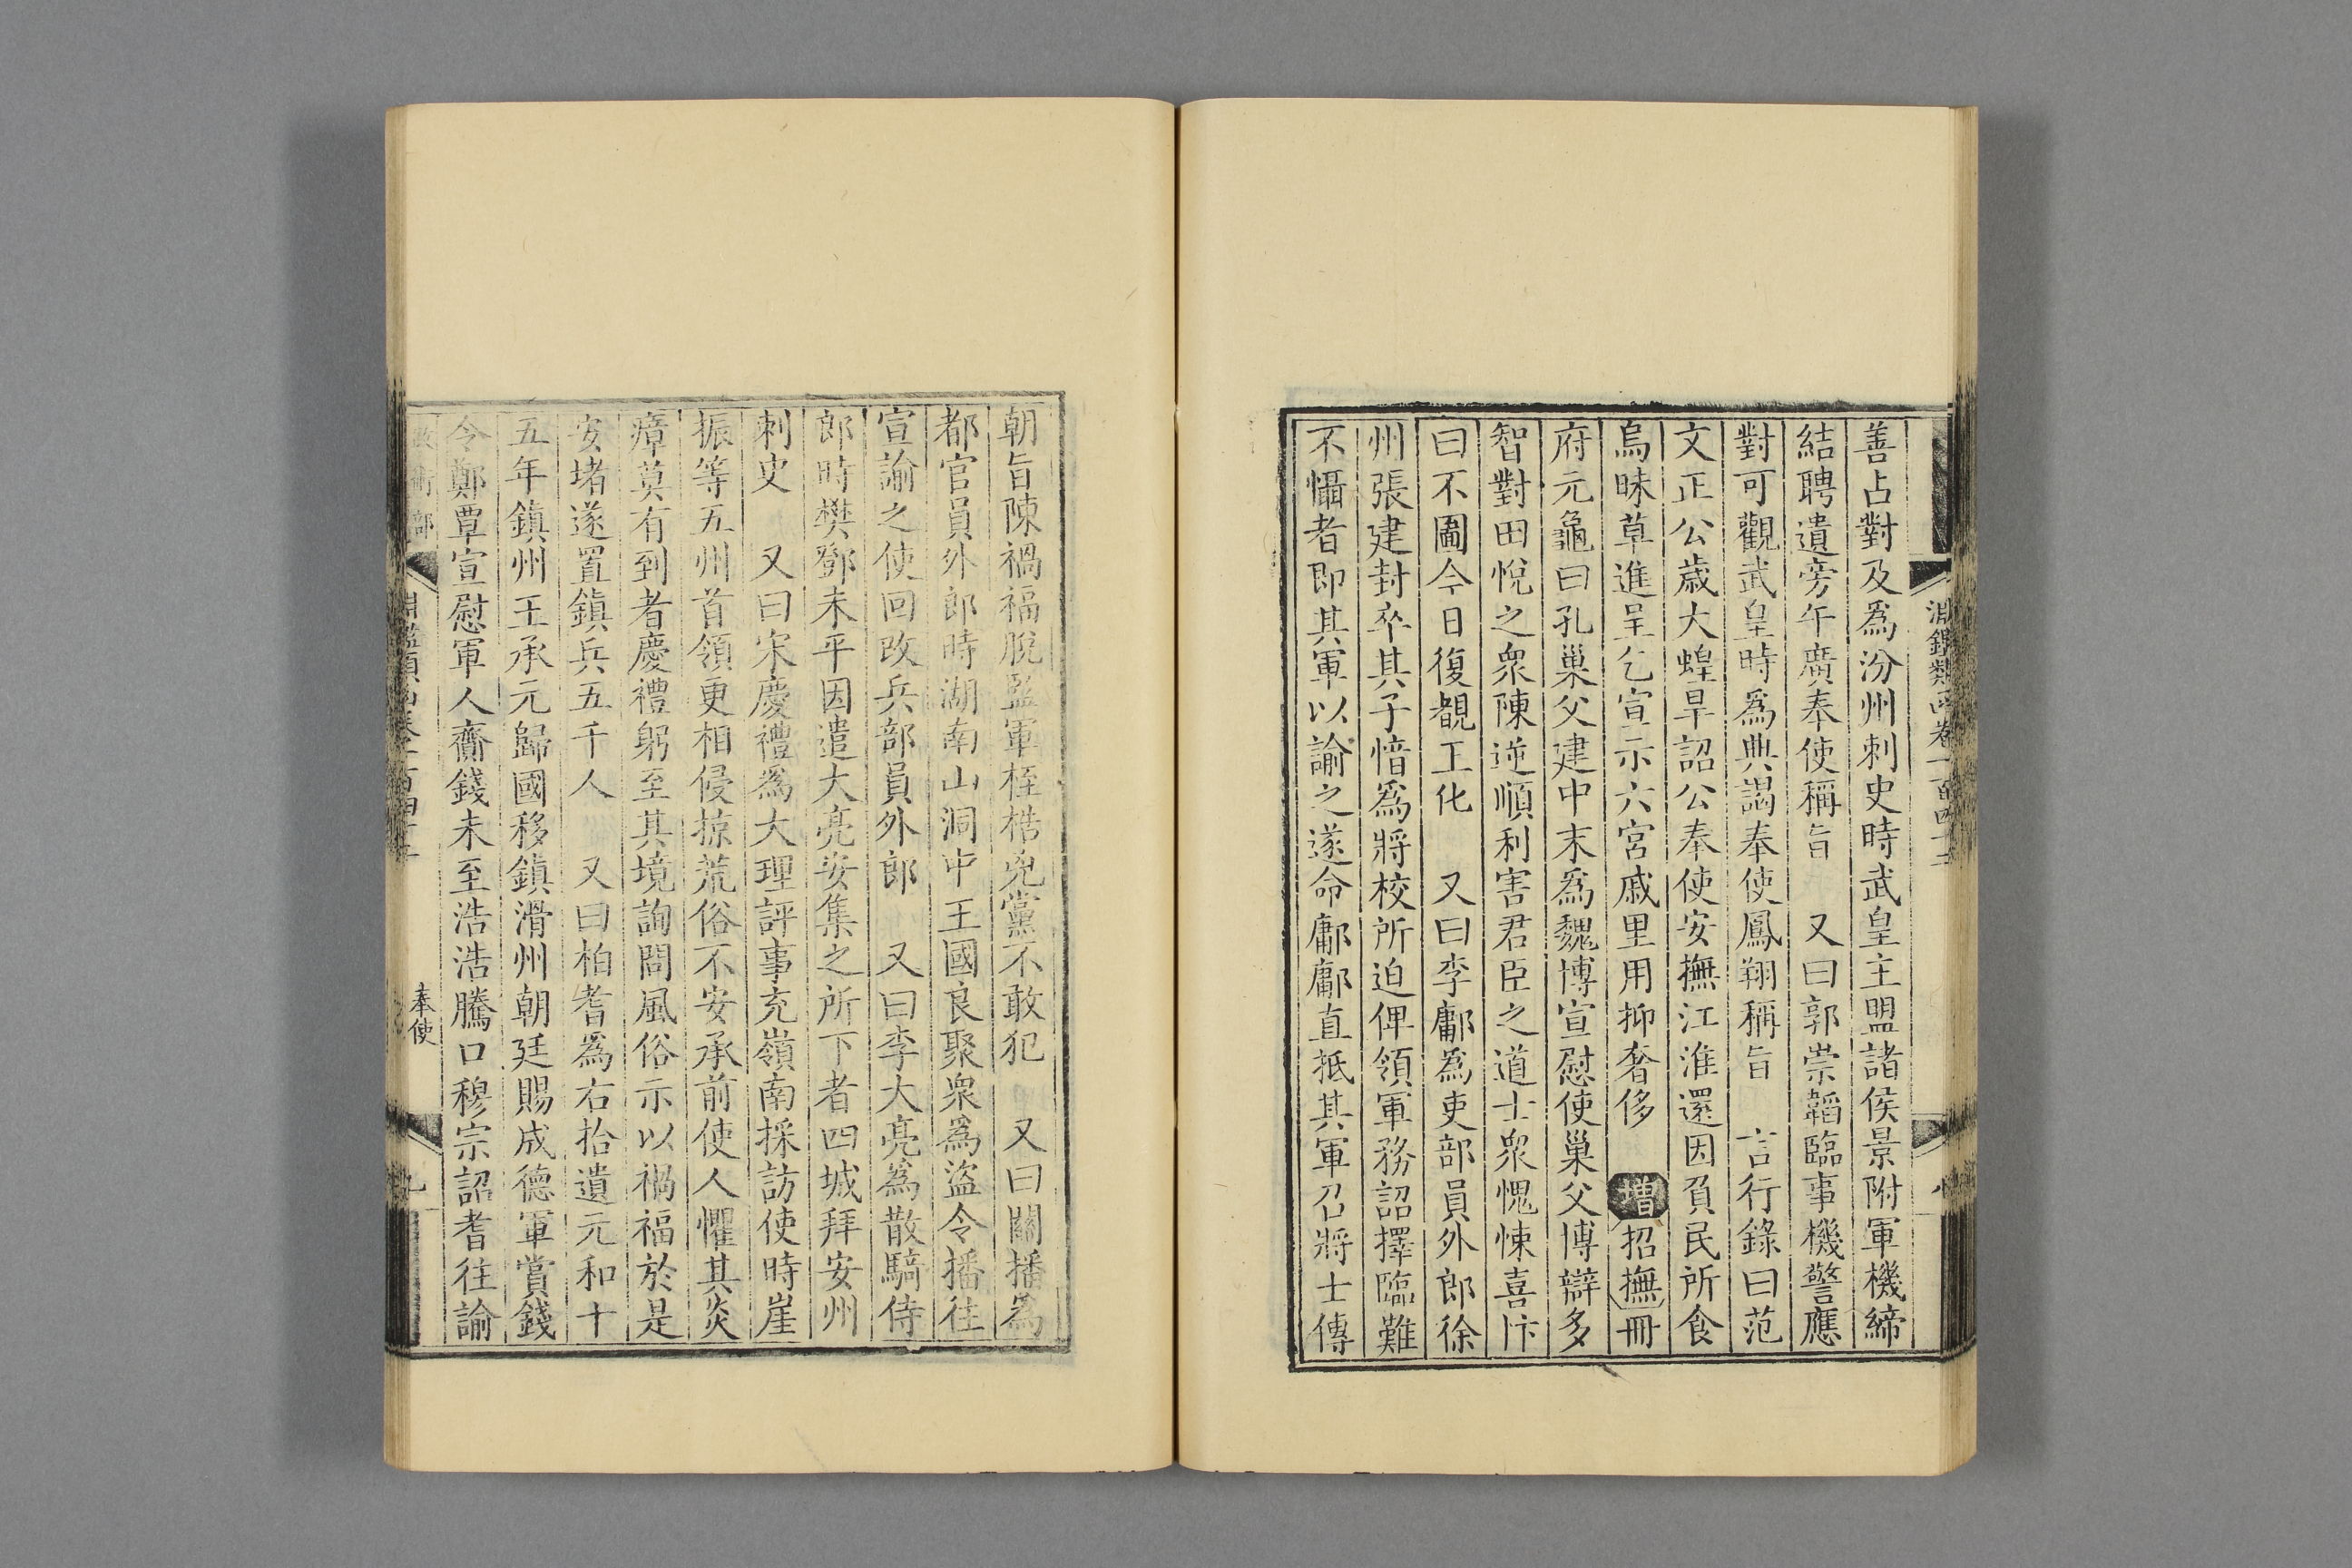 淵鑑類函卷一百四十二
善占對及爲汾州刺史時武皇主盟諸侯景附軍機締
結聘遺旁午廣奉使稱旨　又曰郭崇韜臨事機警應
對可觀武皇時爲典謁奉使鳳翔稱旨　言行錄曰范
文正公歲大蝗旱詔公奉使安撫江淮還因負民所食
烏昧草進呈乞宣示六宮戚里用抑奢侈　增招撫冊
府元龜曰孔巢父建中末爲魏博宣慰使巢父博辯多
智對田悅之眾陳逆順利害君臣之道士眾愧悚喜忭
曰不圖今日復覩王化　又曰李鄘爲吏部員外郎徐
州張建封卒其子愔爲將校所迫俾領軍務詔擇臨難
不懾者即其軍以諭之遂命鄘鄘直抵其軍召將士傳
朝旨陳禍福脫監軍桎梏兇黨不敢犯　又曰關播爲
都官員外郎時湖南山洞中王國良聚眾爲盜令播往
宣諭之使回改兵部員外郎　又曰李大亮爲散騎侍
郎時樊鄧未平因遣大亮安集之所下者四城拜安州
刺史　又曰宋慶禮爲大理評事充嶺南採訪使時崖
振等五州首領更相侵掠荒俗不安承前使人懼其炎
瘴莫有到者慶禮躬至其境詢問風俗示以禍福於是
安堵遂置鎮兵五千人　又曰柏耆爲右拾遺元和十
五年鎮州王承元歸國移鎮滑州朝廷賜成德軍賞錢
令鄭覃宣慰軍人齎錢未至浩浩騰口穆宗詔耆往諭
奉使
九